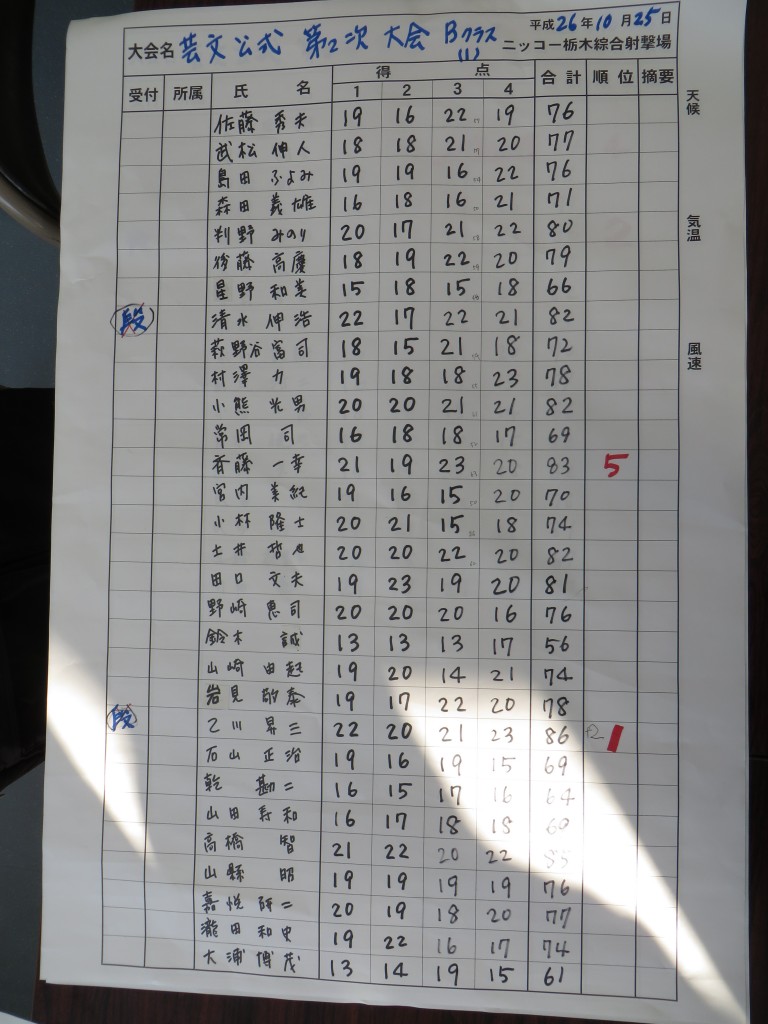 平成26年10月25日
大会名 芸文公式 第2次 大会 Bクラス (1) ニッコー栃木綜合射撃場
受付 所属 氏名 得点 1 2 3 4 合計 順位 摘要
天候
気温
風速
佐藤 秀夫 19 16 22 19 76
武松 伸人 18 18 21 20 77
島田 ふよみ 19 19 16 22 76
森田 義雄 16 18 16 21 71
判野 みのり 20 17 21 22 80
後藤 高慶 18 19 22 20 79
星野 和美 15 18 15 18 66
段 清水 伸浩 22 17 22 21 82
萩野谷 富司 18 15 21 18 72
村澤 力 19 18 18 23 78
小熊 光男 20 20 21 21 82
常岡 司 16 18 18 17 69
斉藤 一幸 21 19 23 20 83 5
宮内 美紀 19 16 15 20 70
小林 隆士 20 21 15 18 74
土井 20 20 22 20 82
田口 文夫 19 23 19 20 81
野崎 恵司 20 20 20 16 76
鈴木 誠 13 13 13 17 56
山崎 由起 19 20 14 21 74
岩見 敬泰 19 17 22 20 78
段 乙川 昇三 22 20 21 23 86 1
石山 正治 19 16 19 15 69
乾 勘二 16 15 17 16 64
山田 寿和 16 17 18 18
高橋 智 21 22 20 22 85
山縣 昭 19 19 19 19 76
嘉悦 研二 20 19 18 20 77
瀧田 和史 19 22 16 17 74
大浦 博茂 13 14 19 15 61